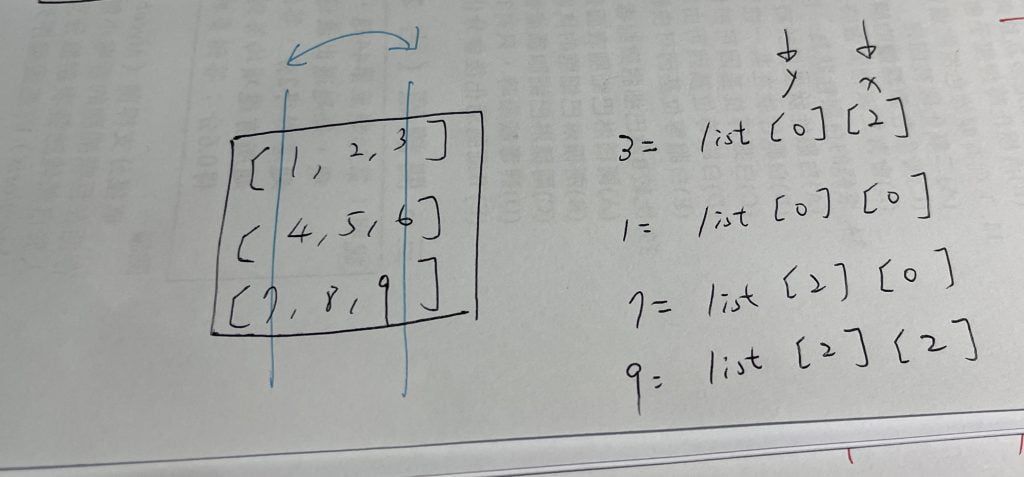 [1, 2, 3]
[4, 5, 6]
[7, 8, 9]
y x
3= list [0] [2]
1= list [0] [0]
7= list [2] [0]
9= list [2] [2]